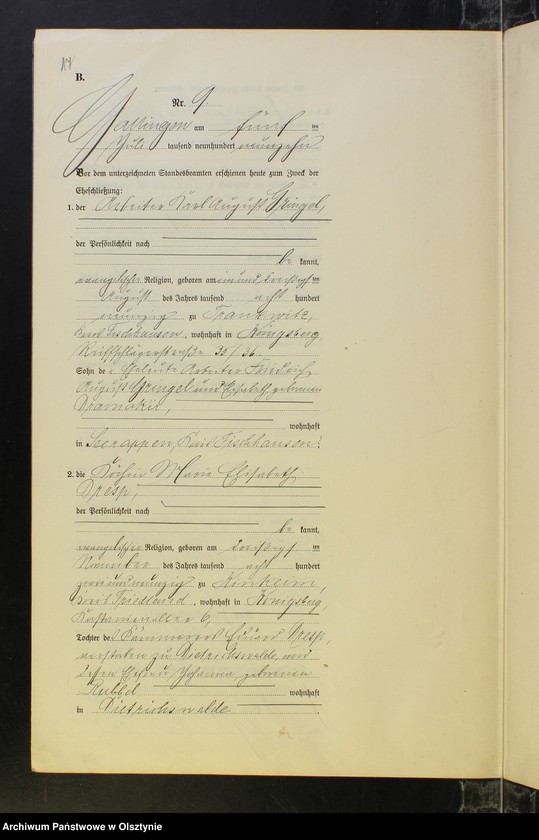 17
B.
Nr. 9
Gallingen am fünf ten
Juli tausend neunhundert neunzehn
Vor dem unterzeichneten Standesbeamten erschienen heute zum Zweck der
Eheschließung:
1. der Arbeiter Karl August Gringel,
der Persönlichkeit nach
be kannt,
evangelischer Religion, geboren am einunddreißigsten
August des Jahres tausend acht hundert
neunzig zu
Kreis Fischhausen, wohnhaft in Königsberg,
Reifschlägerstraße 35/36.
Sohn der Eheleute Arbeiter Friedrich
August Gringel und Elisabeth, geborenen
wohnhaft
in Seerappen, Kreis Fischhausen.
2. die Köchin Marie Elisabeth
Dresp,
der Persönlichkeit nach
be kannt,
evangelischer Religion, geboren am dreißigsten
November des Jahres tausend acht hundert
zweiundneunzig zu Kinkeim,
Kreis Friedland, wohnhaft in Königsberg,
Kastanienallee 6,
Tochter des Kämmerers Eduard Dresp,
verstorben zu Dietrichswalde, und
dessen Ehefrau Johanna geborenen
wohnhaft
in Dietrichswalde
Archiwum Państwowe w Olsztynie